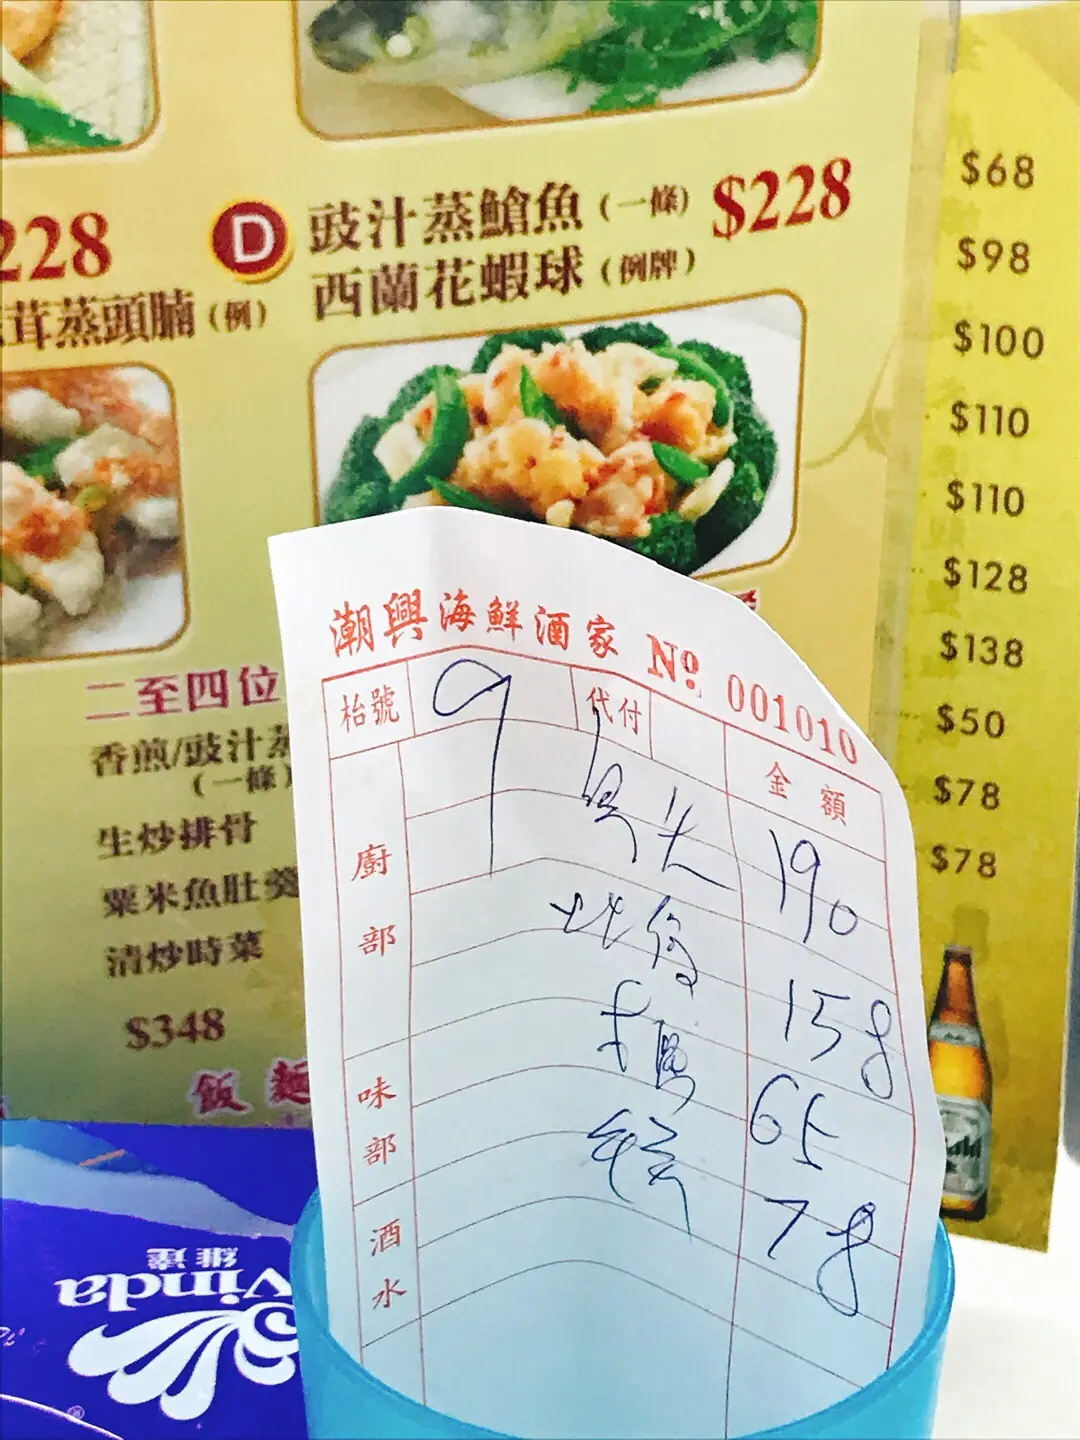 228
D 豉汁蒸鱠魚(一條) $228
茸蒸頭腩(例)
西蘭花蝦球(例牌)
$68
$98
$100
$110
$110
$128
$138
$50
$78
$78
二至四位
香煎/豉汁蒸
(一條)
生炒排骨
粟米魚肚羹
清炒時菜
$348
飯 麵
潮興海鮮酒家 No 001010
枱號 9 代付
金額
廚部
190
158
味部
65
78
酒水
vinda
維達